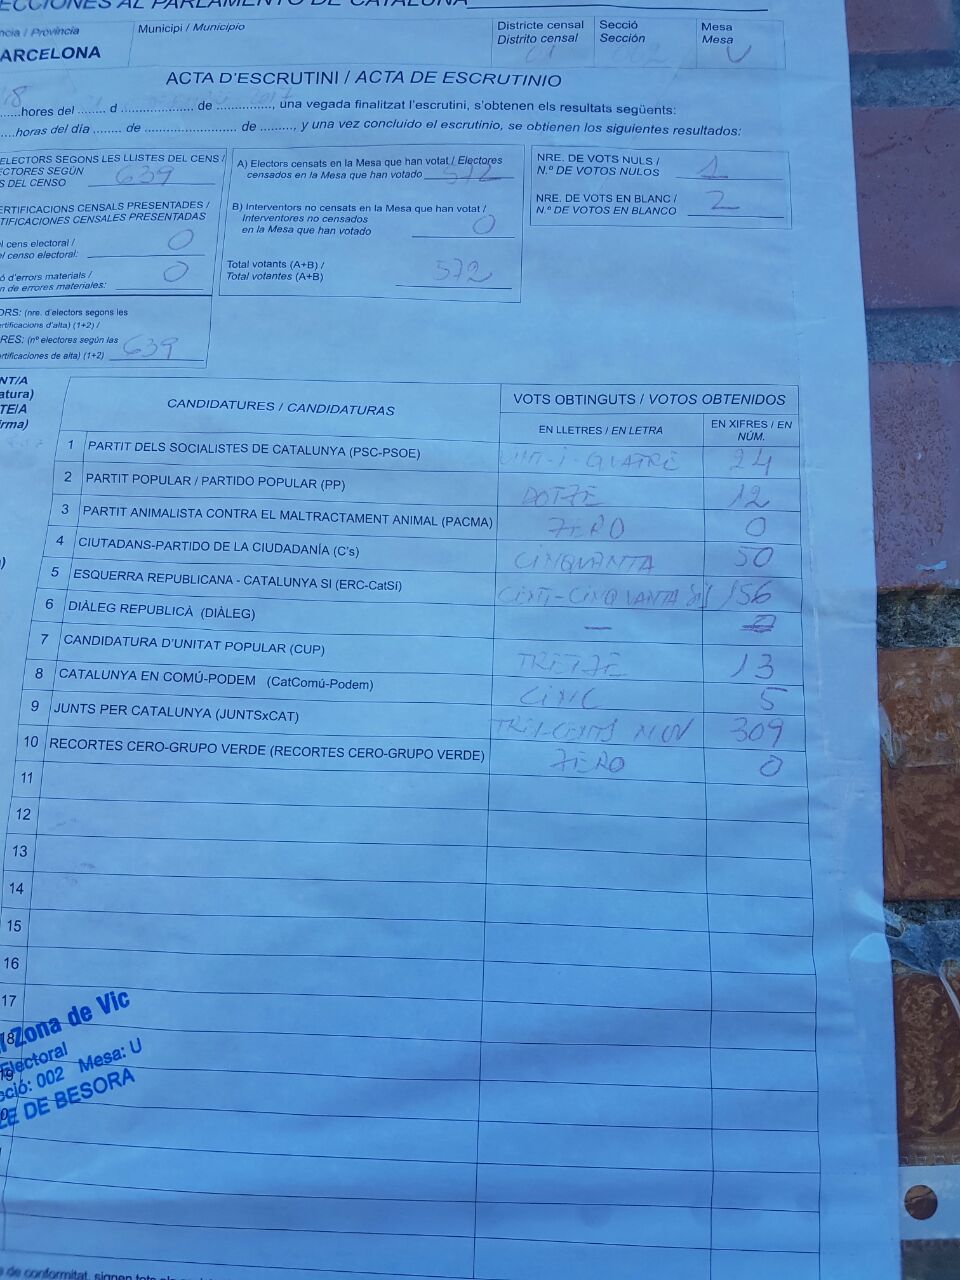 ECCIONES AL PARLAMENTO DE CATALUÑA
ncia / Provincia
ARCELONA
Municipi / Municipio
Districte censal
Distrito censal
01
Secció
Sección
002
Mesa
Mesa
U
ACTA D'ESCRUTINI / ACTA DE ESCRUTINIO
18 hores del ........ d ........ de ........, una vegada finalitzat l'escrutini, s'obtenen els resultats següents:
horas del día ........ de ........ de ........, y una vez concluido el escrutinio, se obtienen los siguientes resultados:
ELECTORS SEGONS LES LLISTES DEL CENS /
ECTORES SEGÚN
S DEL CENSO 639
ERTIFICACIONS CENSALS PRESENTADES /
TIFICACIONES CENSALES PRESENTADAS
l cens electoral /
l censo electoral: 0
ó d'errors materials /
n de errores materiales: 0
ORS: (nre. d'electors segons les
ertificacions d'alta) (1+2) /
RES: (nº electores según las
ertificaciones de alta) (1+2) 639
A) Electors censats en la Mesa que han votat / Electores
censados en la Mesa que han votado 572
B) Interventors no censats en la Mesa que han votat /
Interventores no censados
en la Mesa que han votado 0
Total votants (A+B) /
Total votantes (A+B) 572
NRE. DE VOTS NULS /
N.º DE VOTOS NULOS 1
NRE. DE VOTS EN BLANC /
N.º DE VOTOS EN BLANCO 2
NT/A
atura)
TE/A
irma)
CANDIDATURES / CANDIDATURAS
VOTS OBTINGUTS / VOTOS OBTENIDOS
EN LLETRES / EN LETRA
EN XIFRES / EN
NÚM.
1 PARTIT DELS SOCIALISTES DE CATALUNYA (PSC-PSOE) VINT-I-QUATRE 24
2 PARTIT POPULAR / PARTIDO POPULAR (PP) DOTZE 12
3 PARTIT ANIMALISTA CONTRA EL MALTRACTAMENT ANIMAL (PACMA) ZERO 0
4 CIUTADANS-PARTIDO DE LA CIUDADANÍA (C's) CINQUANTA 50
5 ESQUERRA REPUBLICANA - CATALUNYA SI (ERC-CatSí) CENT-CINQUANTA SIS 156
6 DIÀLEG REPUBLICÀ (DIÀLEG) —
7 CANDIDATURA D'UNITAT POPULAR (CUP) TRETZE 13
8 CATALUNYA EN COMÚ-PODEM (CatComú-Podem) CINC 5
9 JUNTS PER CATALUNYA (JUNTSxCAT) TRES-CENTS NOU 309
10 RECORTES CERO-GRUPO VERDE (RECORTES CERO-GRUPO VERDE) ZERO 0
11
12
13
14
15
16
17
18
19
Zona de Vic
Electoral
cció: 002 Mesa: U
DE BESORA